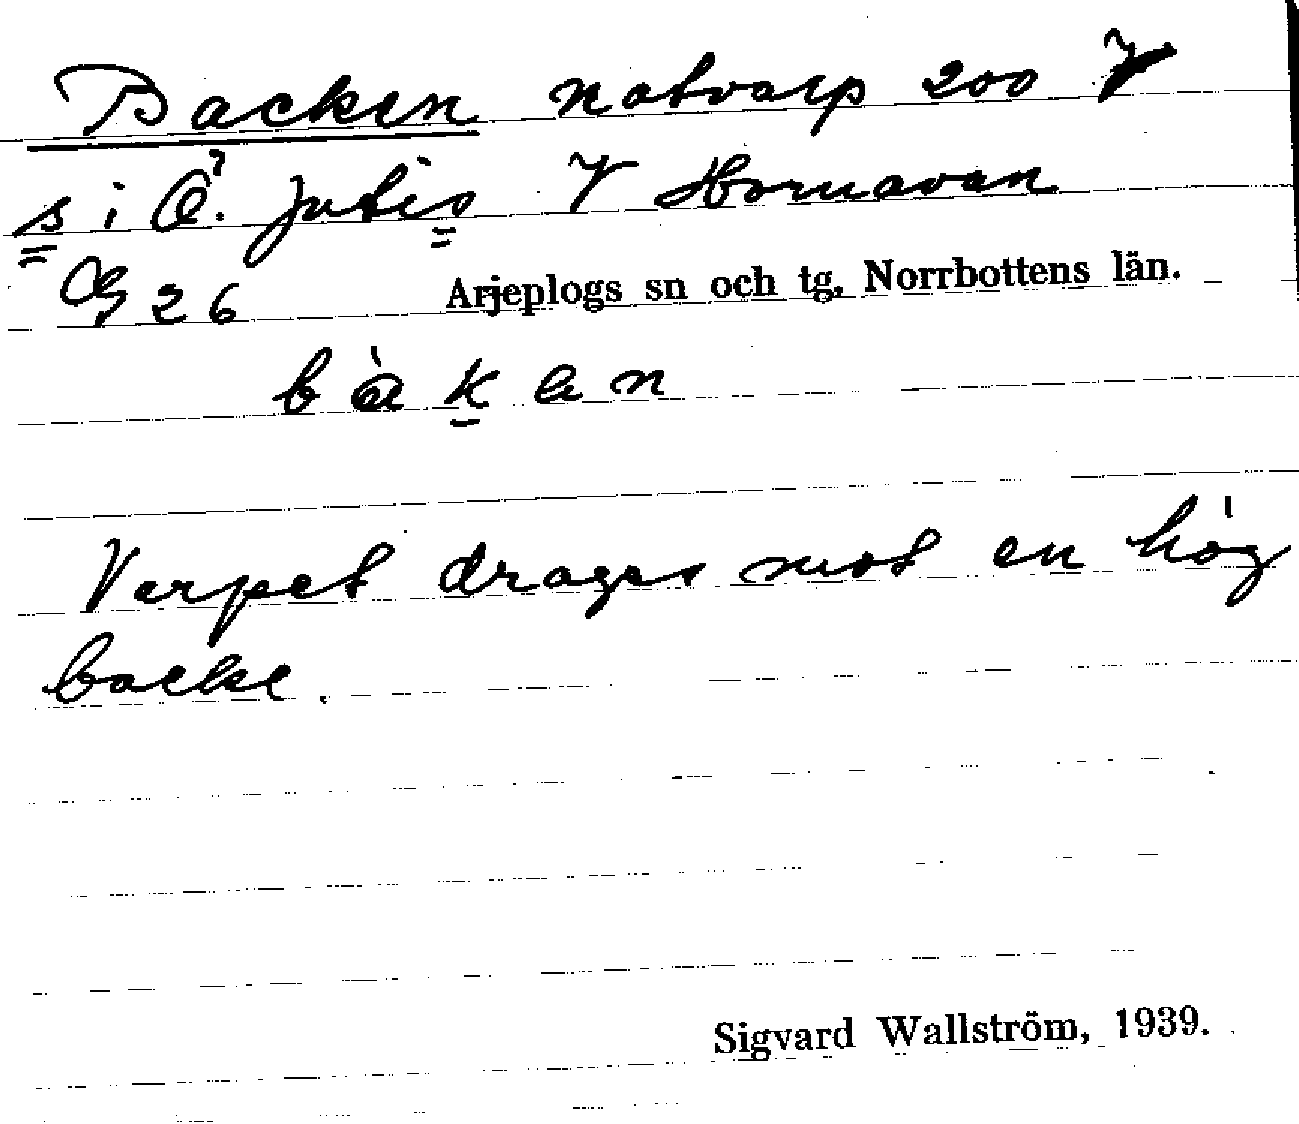 Backen notvarp 200 V
s i Ö. Jutis V Hornavan
G 26 Arjeplogs sn och tg, Norrbottens län.
bàkan
Varpet drages mot en hög
backe.
Sigvard Wallström, 1939.